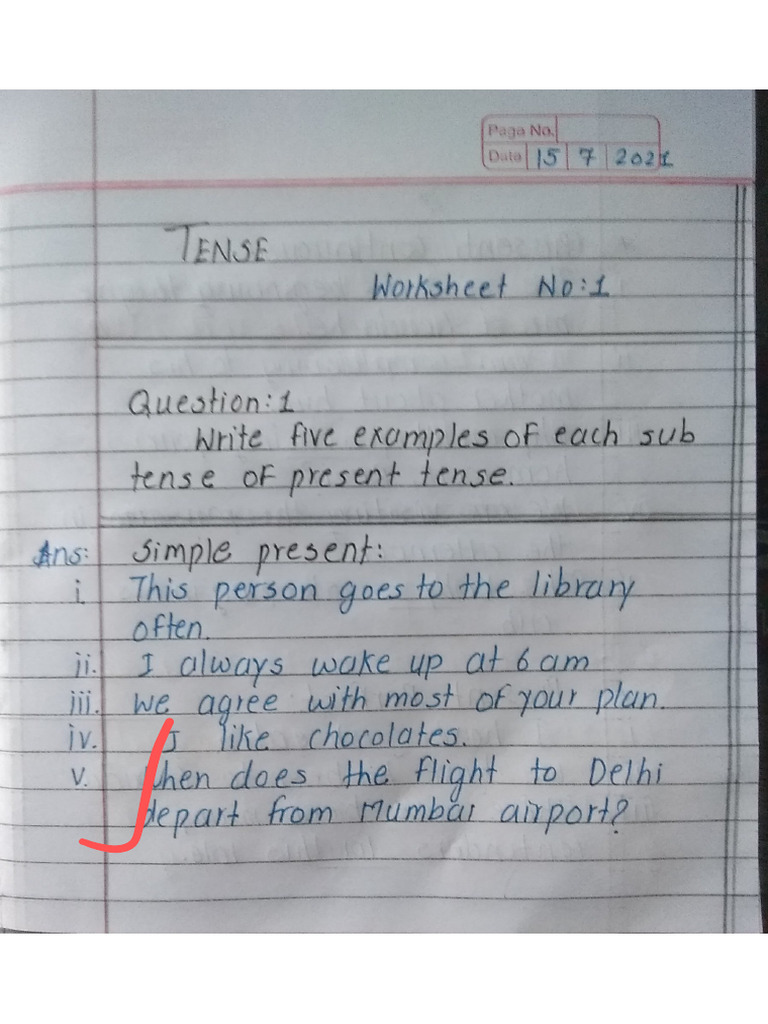 Page No.
Date 15 7 2021
TENSE
Worksheet No:1
Question:1
Write five examples of each sub
tense of present tense.
Ans: Simple present:
i. This person goes to the library
often.
ii. I always wake up at 6 am
iii. We agree with most of your plan.
iv. I like chocolates.
v. when does the flight to Delhi
depart from Mumbai airport?